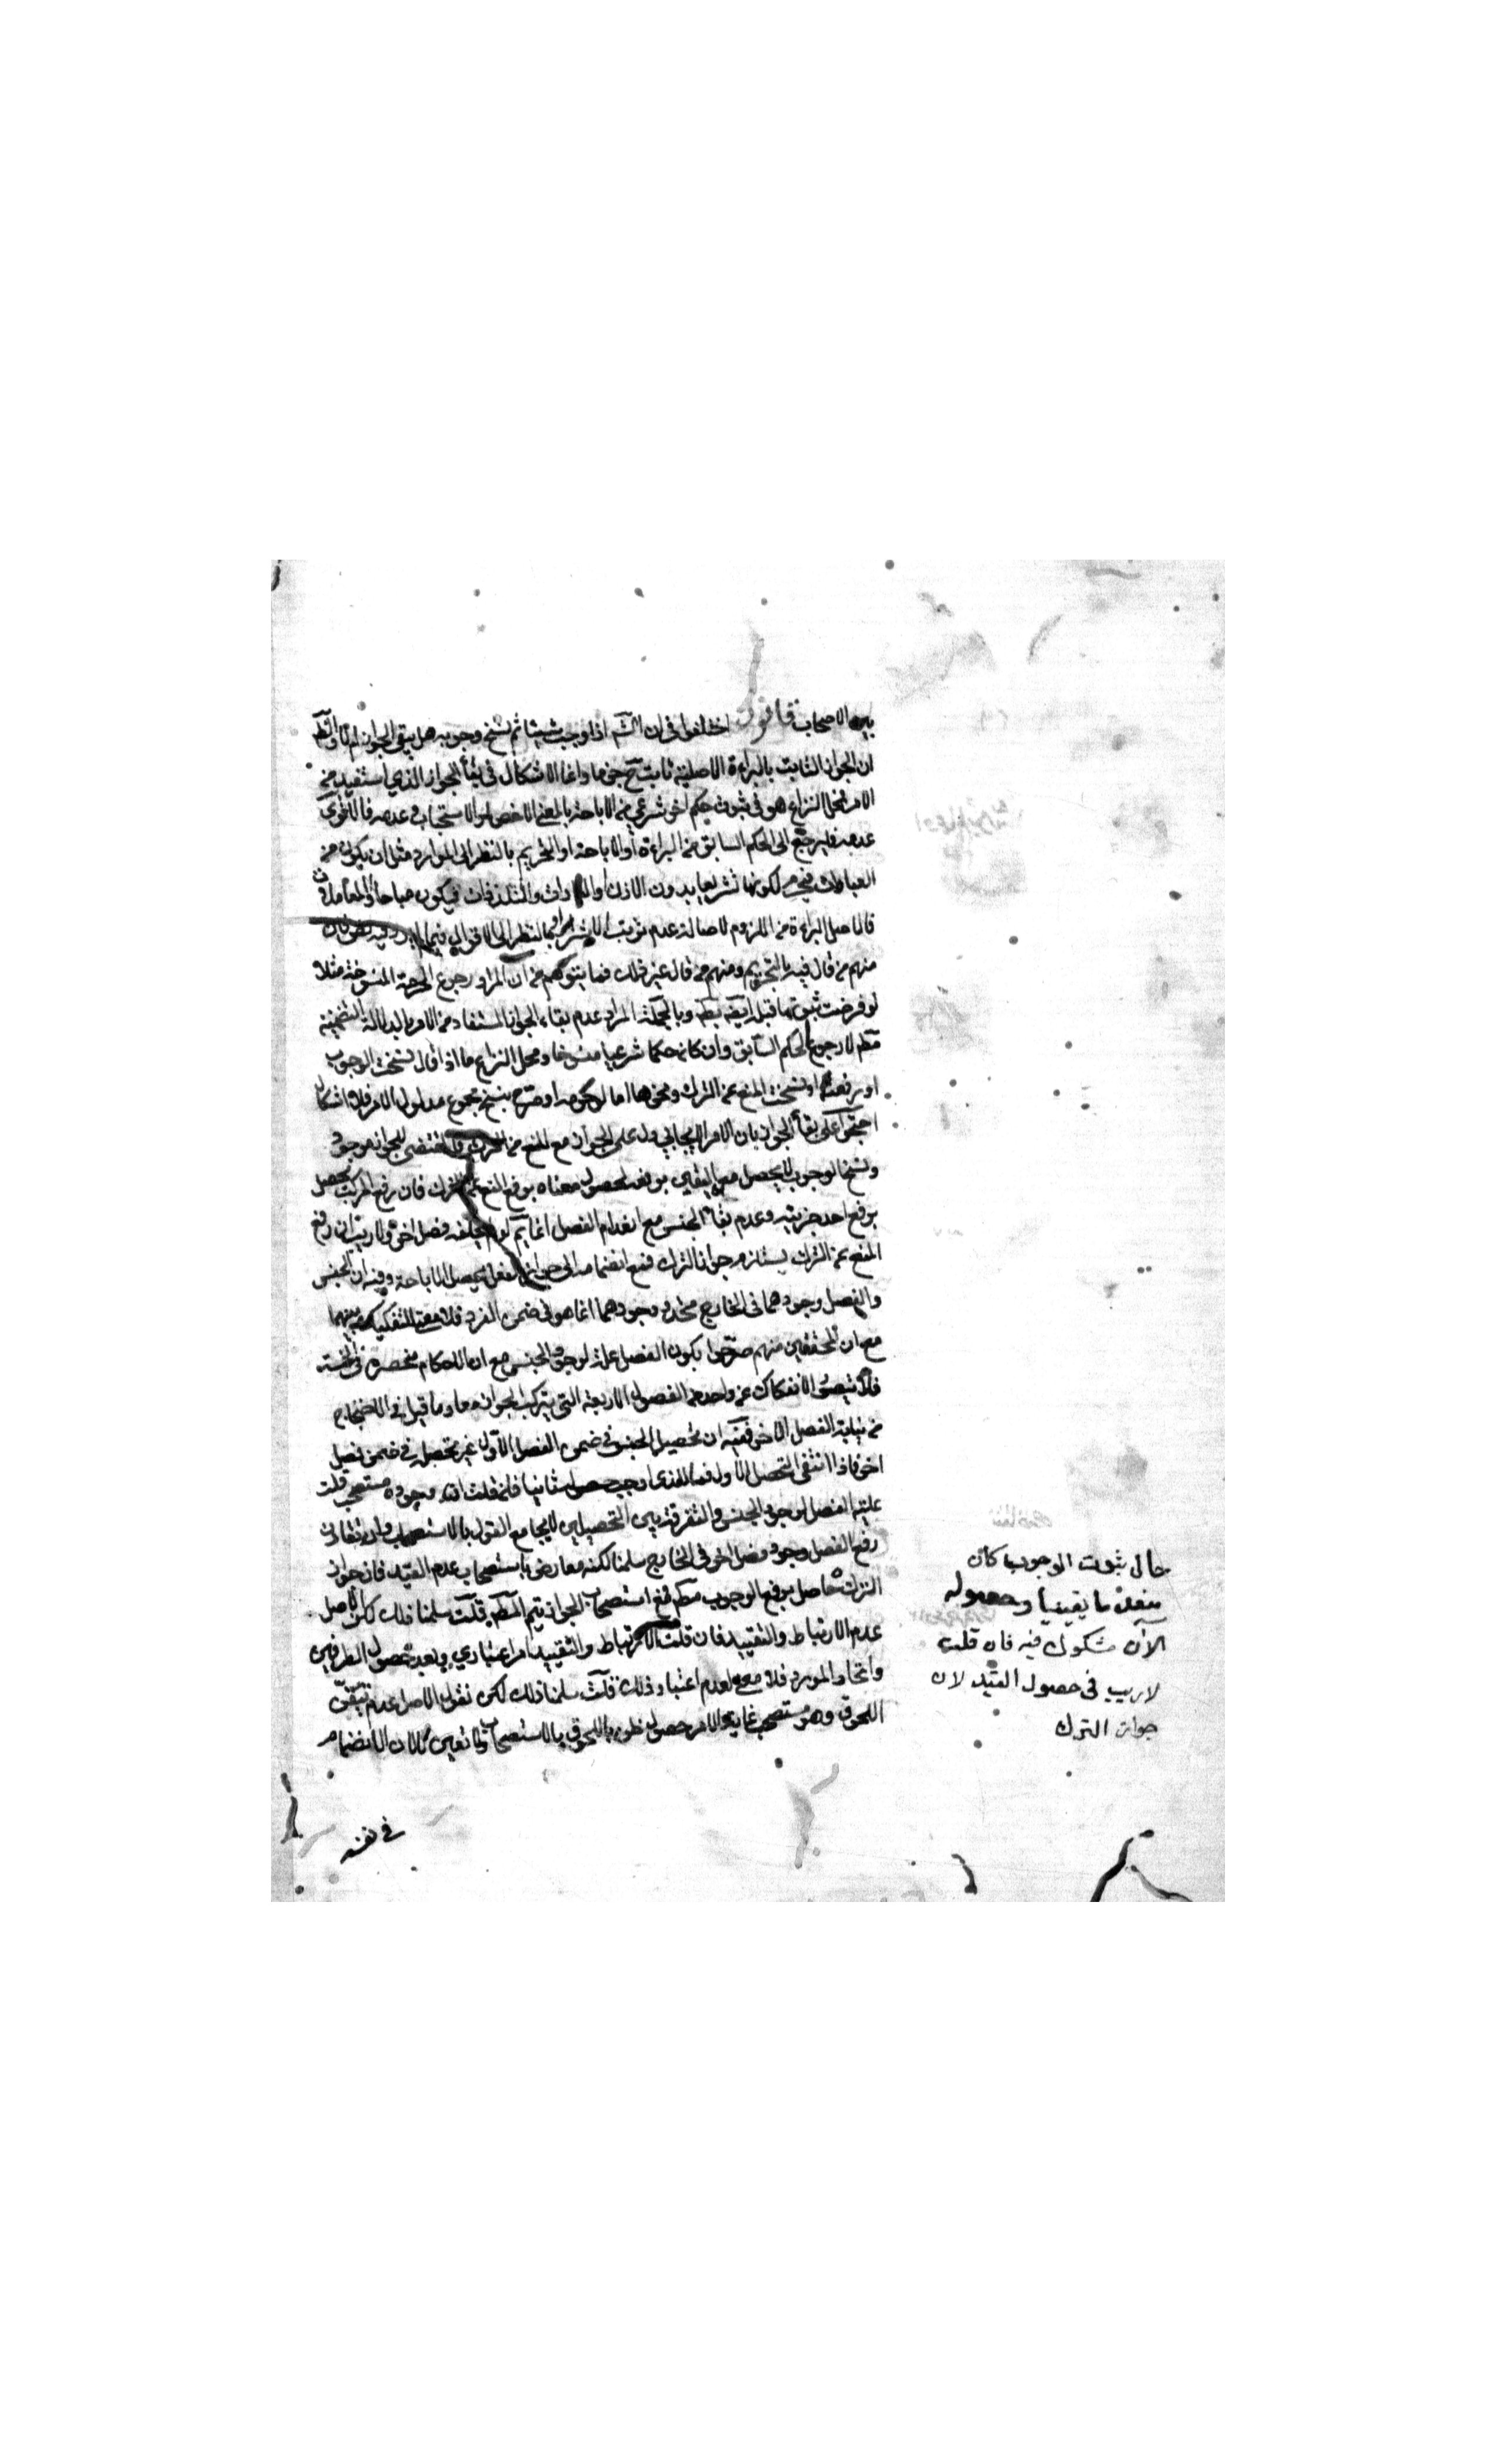 بين الاصحاب قانون اختلفوا فى ان الشم اذا وجب شيئا ثم نسخ وجوبه هل يبقى الجواز ام لا والظم
ان الجواز الثابت بالبراءة الاصلية ثابت ح جزما وانما الاشكال فى بقأ الجواز الذي استفيد من
الامر فمحل النزاع هو فى ثبوت حكم اخر شرعي من الاباحة بالمعنى الاخص او الاستحباب و عدمه فالاقوى
عدمه فيرجع الى الحكم السابق من البراءة أو الاباحة او التحريم بالنظر الى الموارد مثل ان يكون من
العبادات فيحرم لكونها تشريعا بدون الاذن او العادات والتلذذات فيكون مباحا او المعاملات
فالاصل البراءة من اللزوم لاصالة عدم ترتب الاثر او بالنظر الى الاقوال فيما لم يرد فيه نص فان
منهم من قال فيه بالتحريم ومنهم من قال غير ذلك فما يتوهم من ان المراد رجوع الحرمة المنسوخة مثلا
لو فرضت ثبوتها قبل ايضه بطم وبالجملة المراد عدم بقاء الجواز المستفاد من الامر بالدلالة التضمنية
مطم لا رجوع الحكم السابق وان كان حكما شرعيا منسوخا و محل النزاع ما اذا قال نسخت الوجوب
او رفعته او نسخت المنع عن الترك ونحوها اما لو حرمه او صرح بنسخ مجموع مدلول الامر فلا اشكال
احتجوا على بقأ الجواز بان الامر الايجابي دل على الجواز مع المنع من الترك فالمقتضى للجواز موجود
ونسخ الوجوب لا يحصل معه اليقين برفعه لحصول معناه برفع المنع عن الترك فان رفع المركب يحصل
برفع احد جزئيه وعدم بقأ الجنس مع انعدام الفصل انما يتم لو لم يخلفه فصل اخر ولا ريب ان رفع
المنع عن الترك يستلزم جواز الترك فمع انضمامه الى جواز الفعل يحصل الاباحة وفيه ان الجنس
والفصل وجودهما فى الخارج متحد و وجودهما انما هو فى ضمن الفرد فلا معنى للتفكيك بينهما
مع ان المحققين منهم صرحوا بكون الفصل علة لوجود الجنس مع ان الاحكام منحصرة فى الخمسة
فلا يتصور الانفكاك عن واحد من الفصول الاربعة التى يتركب الجواز معها وما قيل فى الاحتجاج
من نيابة الفصل الاخر ففيه ان تحصيل الجنس فى ضمن الفصل الاول غير تحصيله فى ضمن فصل
اخر فاذا انتفى التحصل الاول فما الذى اوجب حصوله ثانيا فان قلت انه وجوده مستصحب قلت
علية الفصل لوجود الجنس والتفرقة بين التحصيلين لا يجامع القول بالاستصحاب وان تقارن
رفع الفصل وجود فصل اخر فى الخارج سلمنا لكنه معارض باستصحاب عدم القيد فان جواز
الترك حاصل برفع الوجوب مطم فمع استصحاب الجواز يتم المطم قلت سلمنا ذلك لكن الاصل
عدم الارتباط والتقييد فان قلت الارتباط والتقييد امر اعتباري وبعد حصول الطرفين
واتحاد المورد فلا معنى لعدم اعتبار ذلك قلت سلمنا ذلك لكن نقول الاصل عدم تيقن
اللحوق وهو مستصحب غاية الامر حصول ظن باللحوق بالاستصحاب ولا تعين كالان الانضمام
فى نفسه
حال ثبوت الوجوب كان
منعدما يقينيا وحصوله
الآن مشكوك فيه فان قلت
لا ريب فى حصول القيد لان
جواز الترك